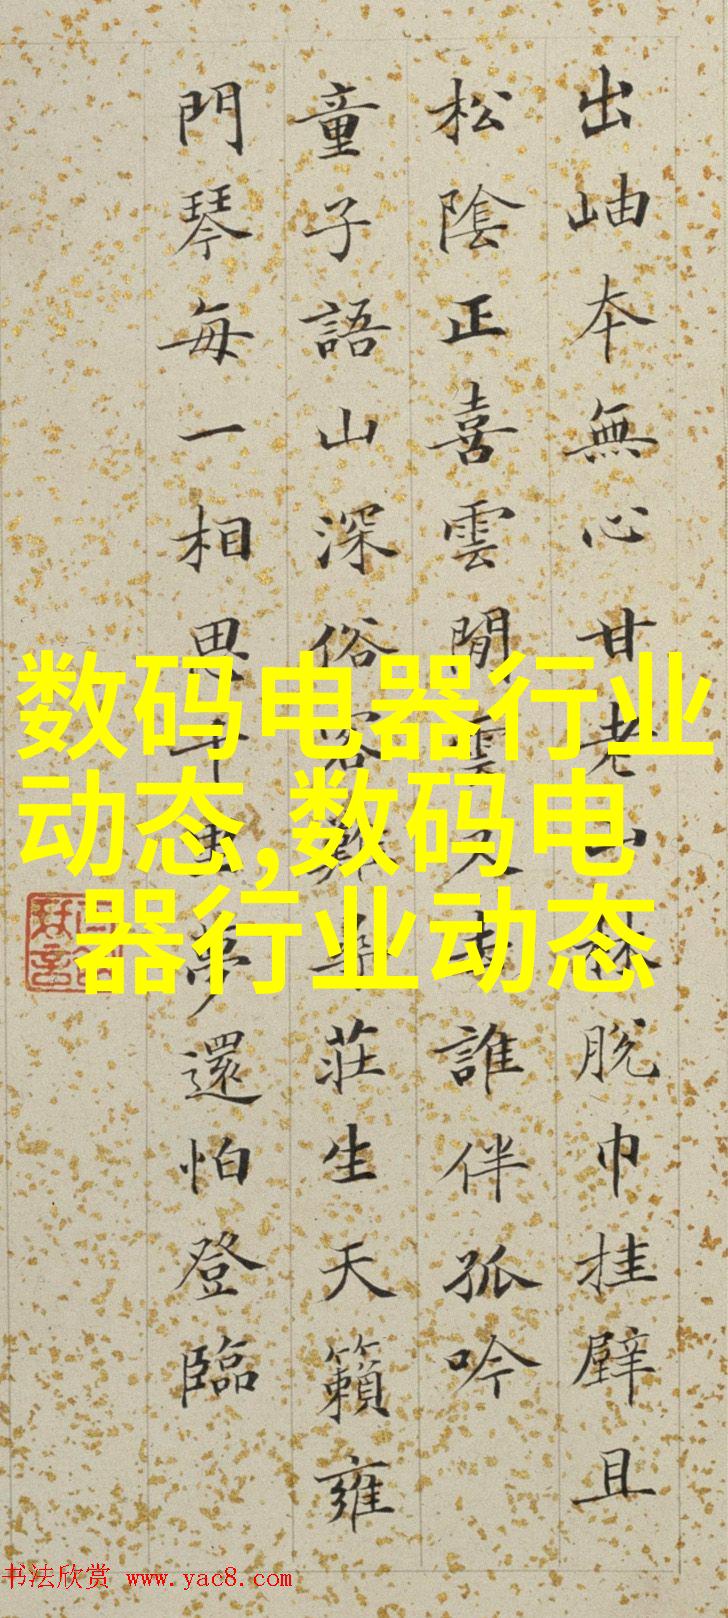 出岫本無心甘老山林脫巾挂壁且
松陰正喜雲閒雲又去誰伴孤吟
童子語山深俗客難尋莊生天籟雍
門琴每一相思千里夢還怕登臨
数码电器行业
动态,数码电
器行业动态
书法欣赏 www.yac8.com